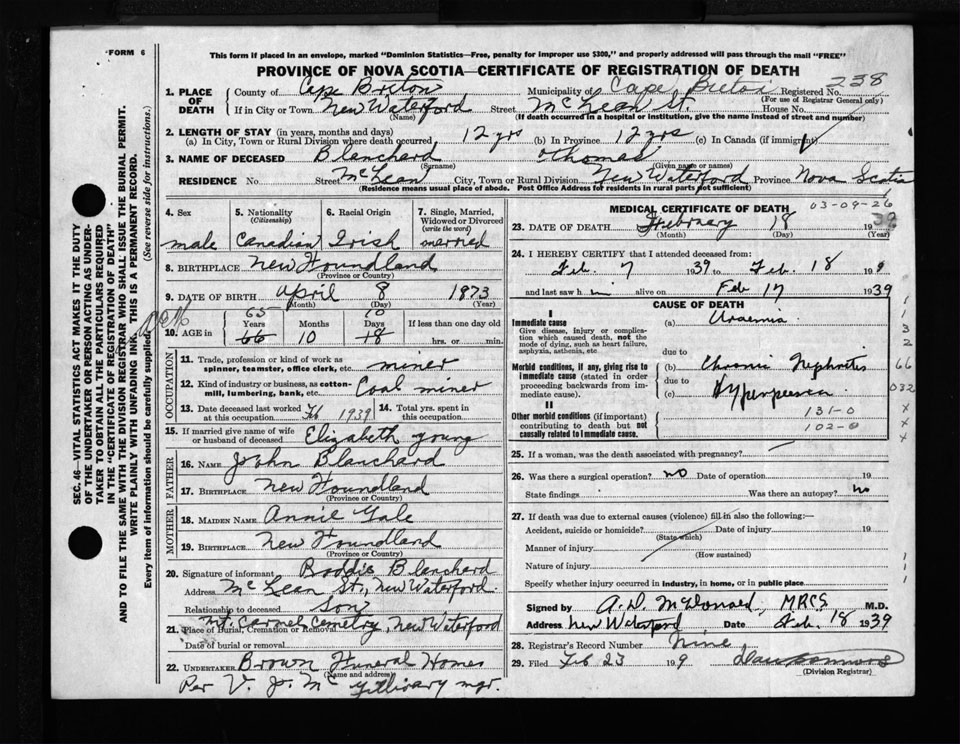 FORM 6
This form if placed in an envelope, marked "Dominion Statistics—Free, penalty for improper use $300," and properly addressed will pass through the mail "FREE"
PROVINCE OF NOVA SCOTIA—CERTIFICATE OF REGISTRATION OF DEATH
SEC. 46—VITAL STATISTICS ACT MAKES IT THE DUTY
OF THE UNDERTAKER OR PERSON ACTING AS UNDER-
TAKER TO OBTAIN ALL THE PARTICULARS REQUIRED
IN THE "CERTIFICATE OF REGISTRATION OF DEATH"
AND TO FILE THE SAME WITH THE DIVISION REGISTRAR WHO SHALL ISSUE THE BURIAL PERMIT.
WRITE PLAINLY WITH UNFADING INK. THIS IS A PERMANENT RECORD.
Every item of information should be carefully supplied. (See reverse side for instructions.)
1. PLACE OF DEATH County of Cape Breton Municipality of Cape Breton Registered No. 238
(For use of Registrar General only)
If in City or Town New Waterford Street McLean St. House No.
(Name) (If death occurred in a hospital or institution, give the name instead of street and number)
2. LENGTH OF STAY (in years, months and days)
(a) In City, Town or Rural Division where death occurred 12 yrs (b) In Province 12 yrs (c) In Canada (if immigrant)
3. NAME OF DECEASED Blanchard Thomas
(Surname) (Given name or names)
RESIDENCE No. Street McLean City, Town or Rural Division New Waterford Province Nova Scotia
(Residence means usual place of abode. Post Office Address for residents in rural parts not sufficient)
4. Sex 5. Nationality (Citizenship) 6. Racial Origin 7. Single, Married, Widowed or Divorced (write the word)
male Canadian Irish married
8. BIRTHPLACE New Foundland
(Province or Country)
9. DATE OF BIRTH April 8 1873
(Month) (Day) (Year)
65 10
10. AGE in Years Months Days If less than one day old
66 10 18 hrs. or min.
OCCUPATION
11. Trade, profession or kind of work as spinner, teamster, office clerk, etc. miner
12. Kind of industry or business, as cotton-mill, lumbering, bank, etc. Coal miner
13. Date deceased last worked at this occupation Feb 1939 14. Total yrs. spent in this occupation
15. If married give name of wife or husband of deceased Elizabeth young
FATHER
16. NAME John Blanchard
17. BIRTHPLACE New Foundland
(Province or Country)
MOTHER
18. MAIDEN NAME Annie Gale
19. BIRTHPLACE New Foundland
(Province or Country)
20. Signature of informant Blanchard
Address McLean St., New Waterford.
Relationship to deceased Son
21. Place of Burial, Cremation or Removal Mt. Carmel Cemetry, New Waterford
Date of burial or removal
22. UNDERTAKER Brown Funeral Homes
(Name and address)
Per V. J. McGillivary mgr.
MEDICAL CERTIFICATE OF DEATH 03-09-26
23. DATE OF DEATH February 18 1939
(Month) (Day) (Year)
24. I HEREBY CERTIFY that I attended deceased from:
Feb. 7 1939 to Feb. 18 199
and last saw him alive on Feb 17 1939
CAUSE OF DEATH
I
Immediate cause (a) Uraemia
Give disease, injury or complication which caused death, not the mode of dying, such as heart failure, asphyxia, asthenia, etc
due to
Morbid conditions, if any, giving rise to immediate cause (stated in order proceeding backwards from immediate cause). (b) Chronic Nephritis
due to
(c)
II
Other morbid conditions (if important) contributing to death but not causally related to immediate cause.
131-0
102-0
1
1
3
2
66
032
x
x
x
25. If a woman, was the death associated with pregnancy?
26. Was there a surgical operation? no Date of operation 19
State findings Was there an autopsy? No
27. If death was due to external causes (violence) fill in also the following:—
Accident, suicide or homicide? Date of injury 19
(State which)
Manner of injury
(How sustained)
Nature of injury
Specify whether injury occurred in industry, in home, or in public place
1
1
Signed by A. D. McDonald, MRCS M.D.
Address New Waterford Date Feb. 18 1939
28. Registrar's Record Number Nine
29. Filed Feb 23 199
(Division Registrar)